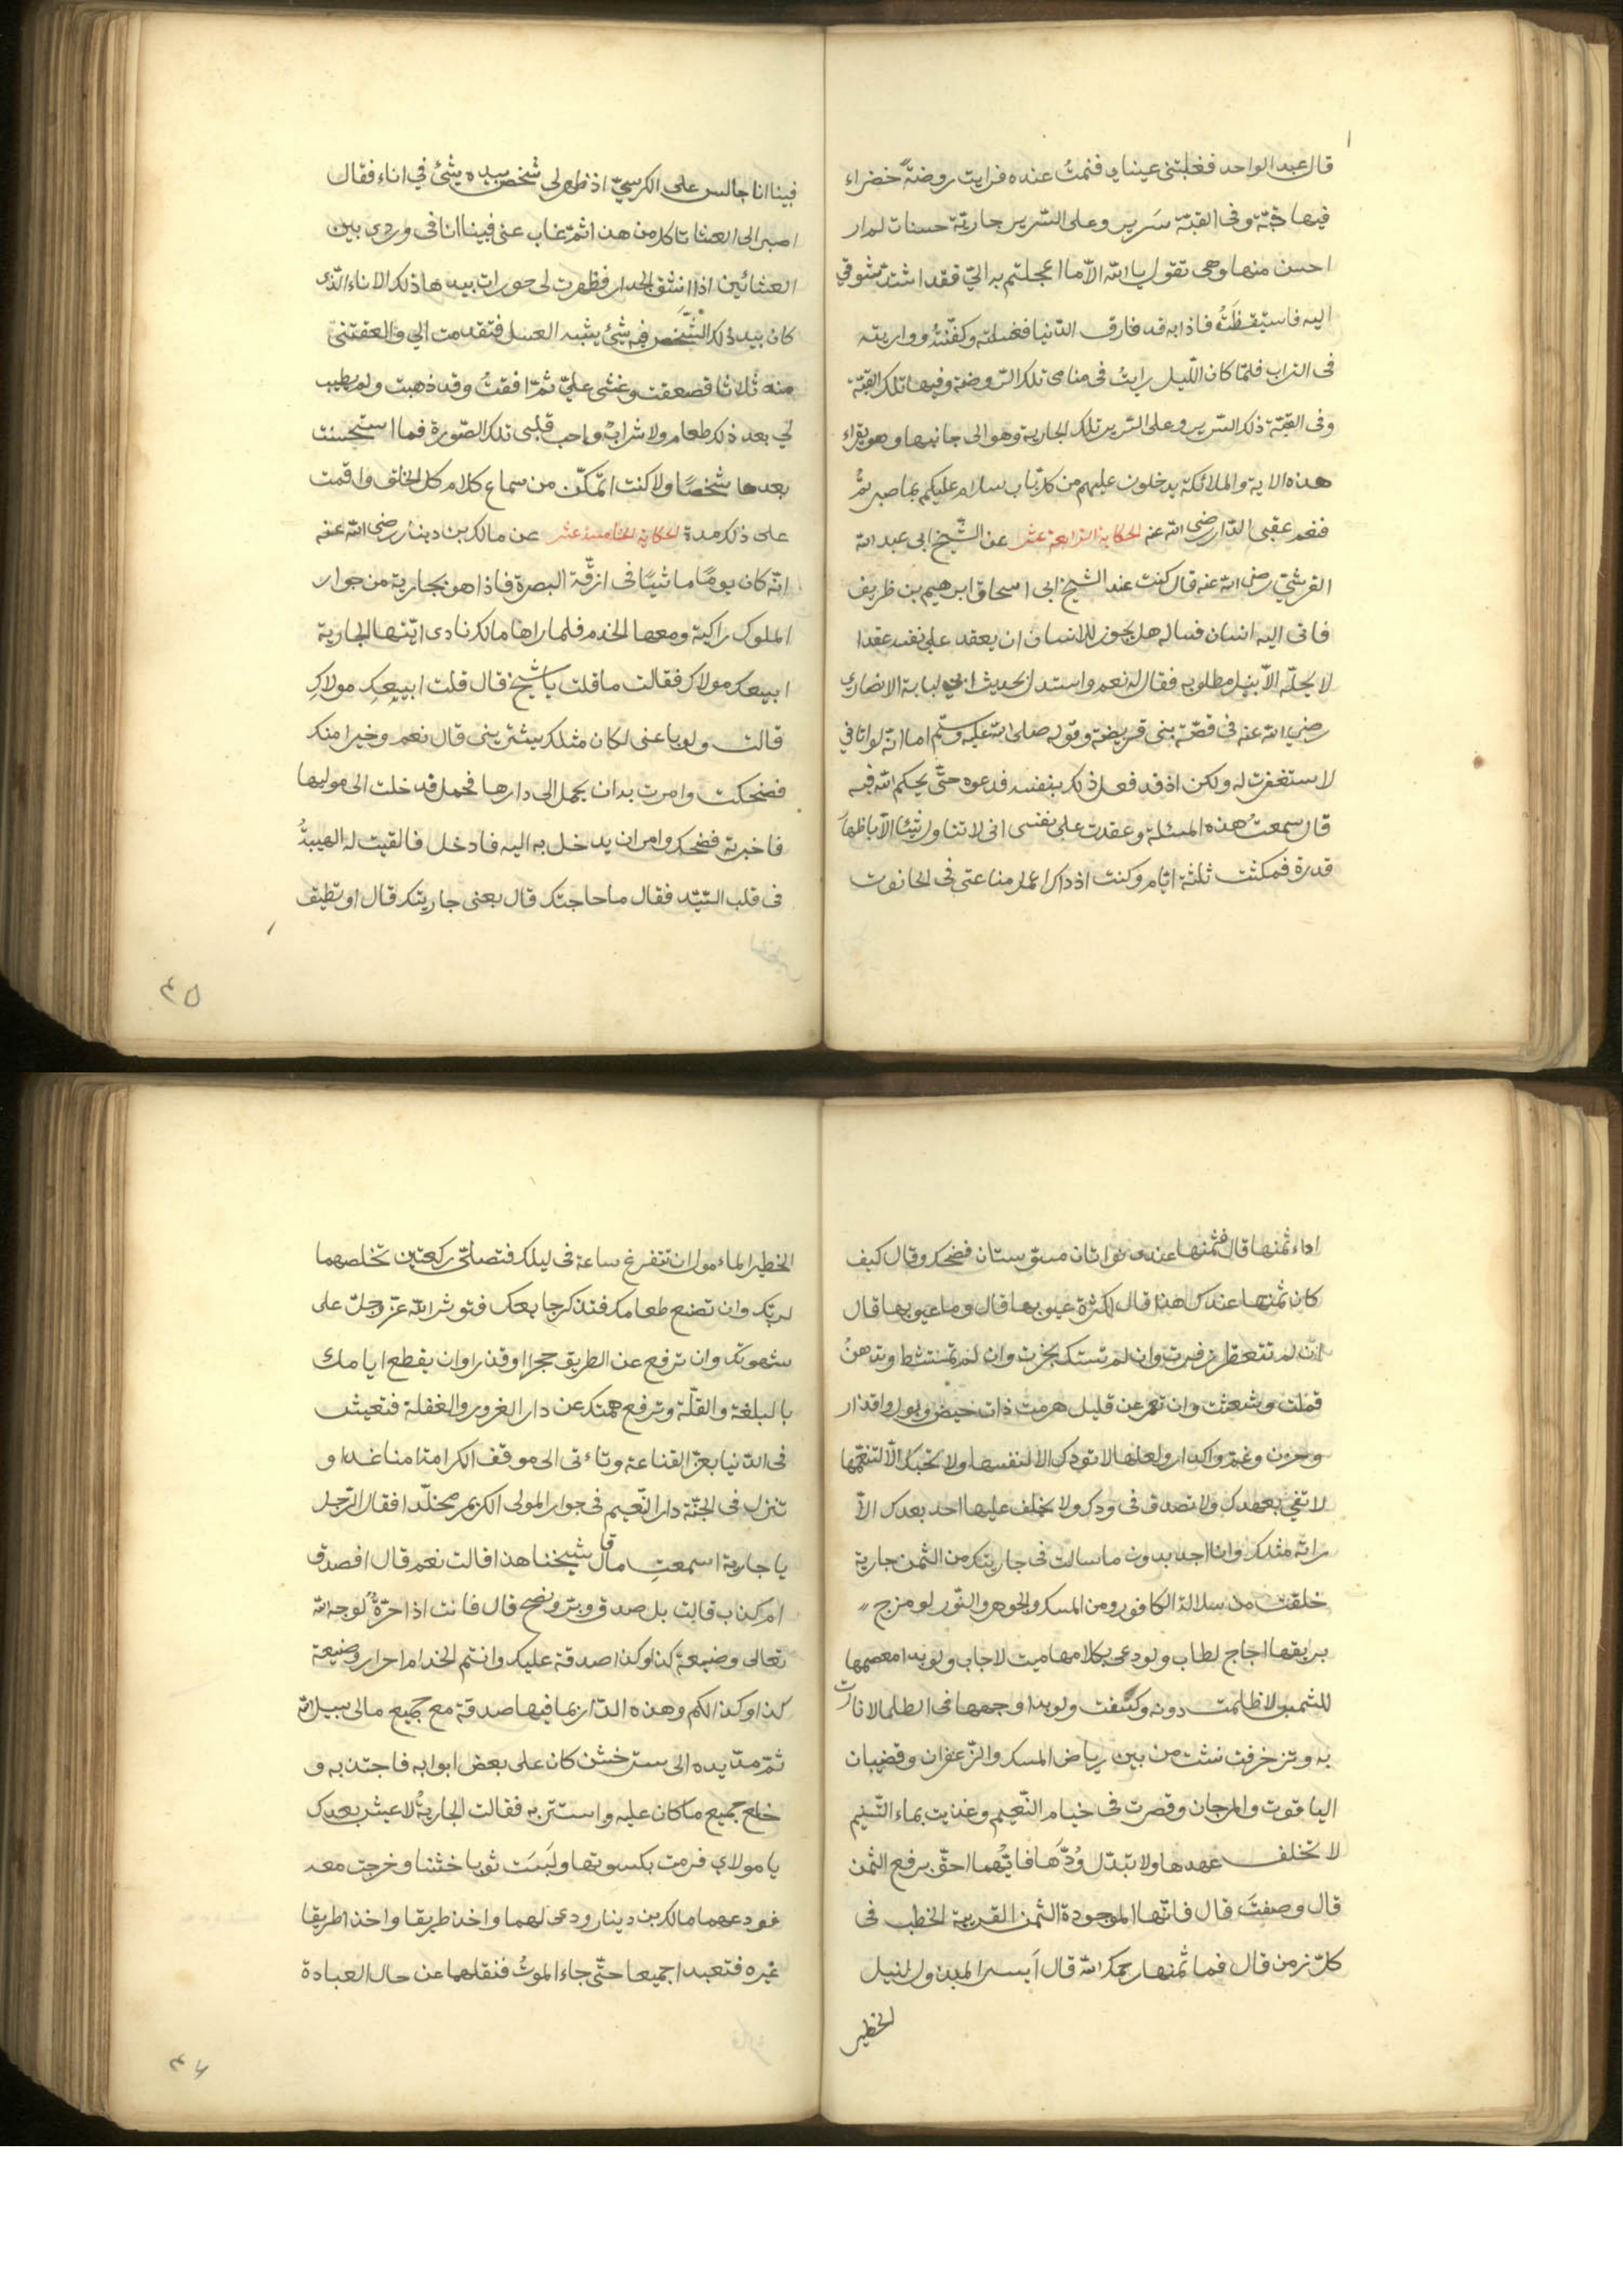 قال عبد الواحد فغلبتنى عيناى فنمتُ عنده فرايت روضةً خضراء
فيها قبّة وفى القبّة سَرير وعلى السّرير جارية حسنات لم ار
احسن منها وهى تقول يا الله الّا ما اعجلتم به اليّ فقد اشتدّ شوقي
اليه فاستيقظتُ فاذا به قد فارق الدّنيا فغسلته وكفّنتُه وواريته
فى التراب فلمّا كان اللّيل رايتُ فى منامى تلك الرّوضة وفيها تلك القبّة
وفى القبّة ذلك السّرير وعلى السّرير تلك الجارية وهو الى جانبها وهو يقراء
هذه الاية والملائكة يدخلون عليهم من كلّ باب سلام عليكم بما صبرتُم
فنعم عقبى الدّار رضى الله عنه الحكاية الرابعة عشر عن الشّيخ ابى عبد الله
القرشيّ رضى الله عنه قال كنت عند الشيخ ابى اسحاق ابرهيم بن ظريف
فاتى اليه انسان فساله هل يجوز للانسان ان يعقد على نفسه عقدا
لا يحلّه الّا بنيل مطلوبه فقال له نعم واستدل بحديث ابي لبابة الانصاري
رضي الله عنه فى قصّة بنى قريضة وقوله صلى الله عليه وسلّم اما انّه لو اتانى
لاستغفرت له ولكن اذ قد فعل ذلك بنفسه فدعوه حتّى يحكم الله فيه
قال سمعتُ هذه المسئلة وعقدت على نفسى انى لا تناول شيئا الّا باظهار
قدرة فمكثت ثلثة ايّام وكنت اذ ذاك اعمل صناعتى فى الحانوت
فبينا انا جالس على الكرسيّ اذ ظهر لى شخص بيده شئ في اناء فقال
اصبر الى العشا تاكل من هذا ثمّ غاب عنى فبينا انا فى وردى بين
العشائين اذا انشق الجدار فظهرت لى حورات بيدها ذلك الاناء الّذى
كان بيد ذلك الشّخص فيه شئ يشبه العسل فتقدمت الي والعقتنى
منه ثلاثا فصعقت وغشى عليّ ثمّ افقتُ وقد ذهبت ولم يطيب
لي بعد ذلك طعام ولا شرابٌ واحب قلبى تلك الصّورة فما استحسنت
بعدها شخصًا ولا كنت اتمكّن من سماع كلام كل الخلق واقمت
على ذلك مدة الحكاية الخامسة عشر عن مالك بن دينار رضى الله عنه
انّه كان يومًا ماشيًا فى ازقّة البصرة فاذا هو بجارية من جوار
الملوك راكبة ومعها الخدم فلما راها مالك نادى ايّتها الجارية
ابيعك مولاك فقالت ما قلت يا شيخ قال قلت ابيعكِ مولاكِ
قالت ولو باعنى لكان مثلك يشترينى قال نعم وخيرا منك
فضحكت وامرت به ان يحمل الى دارها فحمل فدخلت الى موليها
فاخبرته فضحك وامر ان يدخل به اليه فادخل فالقيت له الهيبةُ
فى قلب السّيّد فقال ما حاجتك قال بعنى جاريتك قال او تطيق
٤٥
اداء ثمنها قال فثمنها عندى نواتان مسوّستان فضحك وقال كيف
كان ثمنها عندك هذا قال لكثرة عيوبها قال وما عيوبها قال
ان لم تتعطر زفرت وان لم تستك بخرت وان لم تمتشط وتدهنُ
قملت وشعثت وان تعمر عن قليل هرمت ذات حيض وبول واقذار
وحزن وغمّ واكدار ولعلها لا تودك الا لنفسها ولا تحبك الّا لتنعّمها
لا تفي بعهدك ولا تصدق فى ودك ولا يخلف عليها احد بعدك الّا
راته مثلك وانا اجد بدون ما سالت فى جاريتك من الثمن جارية
خلقت من سلالة الكافور ومن المسك والجوهر والنّور لو مزج
بريقها اجاج لطاب ولو دعى بكلامها ميت لاجاب ولو بدا معصمها
للشمس لاظلمت دونه وكسفت ولو بدا وجهها فى الظلما لانارت
به وتزخرفت نشت من بين رياض المسك والزّعفران وقضبان
الياقوت والمرجان وقصرت فى خيام النّعيم وغذيت بماء التّسنيم
لا تخلف عهدها ولا يتبّدل وُدّهَا فايّهما احقّ برفع الثمن
قال وصفتَ قال فانّها الموجودة الثمن القريبة الخطب فى
كلّ زمن قال فما ثمنها رحمك الله قال اَيسر المبذول لنيل
الخطير
الخطير الماءمول ان تتفرغ ساعة فى ليلك فتصلّى ركعتين تخلصهما
لربّك وان تضع طعامك فتذكر جايعك فتوثر الله عزّ وجلّ على
شهوتك وان ترفع عن الطريق حجرا او قذرا وان يقطع ايامك
بالبلغة والقلّة وترفع همّتك عن دار الغرور والغفلة فتعيش
فى الدّنيا بعزّ القناعة وتاءتى الى موقف الكرامة امنا غدا و
تنزل فى الجنّة دار النّعيم فى جوار المولى الكريم مخلّدا فقال الرّجل
يا جارية اسمعتِ ما قال شيخنا هذا قالت نعم قال افصدق
ام كذب قالت بل صدق وبرّ ونصح قال فانت اذا حرّةٌ لوجه الله
تعالى وضيعة كذا وكذا صدقة عليك وانتم الخدام احرار وضيعة
كذا وكذا لكم وهذه الدّار بما فيها صدقة مع جميع مالى سبيل الله
ثمّ مدّ يده الى ستر خشن كان على بعض ابوابه فاجتذبه و
خلع جميع ما كان عليه واستتر به فقالت الجاريةُ لا عيش بعدك
يا مولاي فرمت بكسوتها ولَبسَت ثوبا خشنا وخرجت معه
فودعهما مالك بن دينار ودعى لهما واخذ طريقا واخذ اطريقا
غيره فتعبدا جميعا حتّى جاء الموتُ فنقلهما عن حال العبادة
٤٦